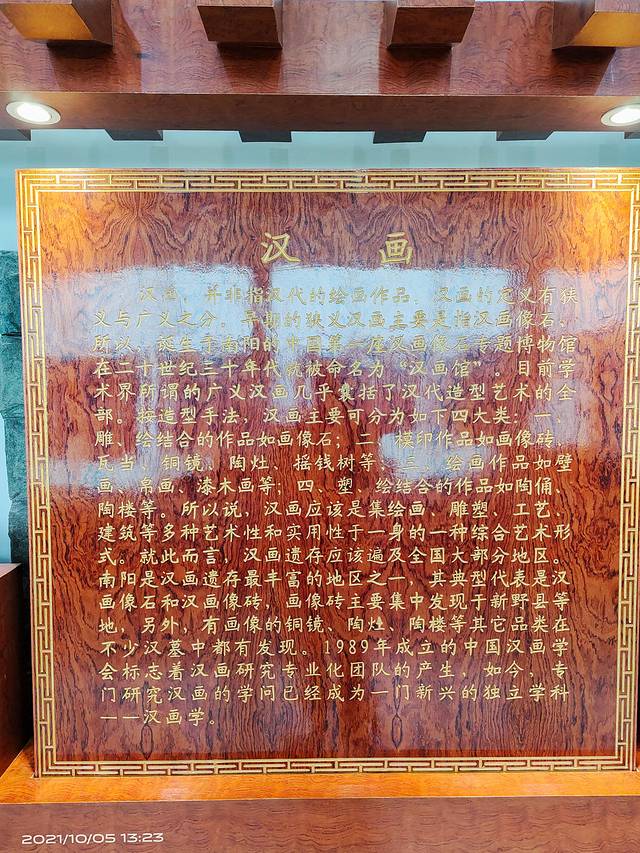 汉 画
汉画，并非指汉代的绘画作品。汉画的定义有狭
义与广义之分。早期的狭义汉画主要是指汉画像石，
所以，诞生于南阳的中国第一座汉画像石专题博物馆
在二十世纪三十年代就被命名为“汉画馆”。目前学
术界所谓的广义汉画几乎囊括了汉代造型艺术的全
部。按造型手法，汉画主要可分为如下四大类：一、
雕、绘结合的作品如画像石；二、模印作品如画像砖、
瓦当、铜镜、陶灶、摇钱树等；三、绘画作品如壁
画、帛画、漆木画等；四、塑、绘结合的作品如陶俑、
陶楼等。所以说，汉画应该是集绘画、雕塑、工艺、
建筑等多种艺术性和实用性于一身的一种综合艺术形
式。就此而言，汉画遗存应该遍及全国大部分地区。
南阳是汉画遗存最丰富的地区之一，其典型代表是汉
画像石和汉画像砖，画像砖主要集中发现于新野县等
地，另外，有画像的铜镜、陶灶、陶楼等其它品类在
不少汉墓中都有发现。1989年成立的中国汉画学
会标志着汉画研究专业化团队的产生，如今，专
门研究汉画的学问已经成为一门新兴的独立学科
——汉画学。
2021/10/05 13:23